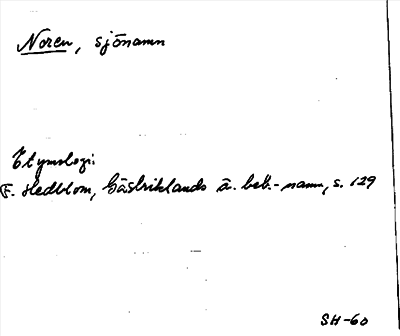 Noren, sjönamn
Etymologi.
F. Hedblom, Gästriklands ä. beb.-namn, s. 129
SH-60